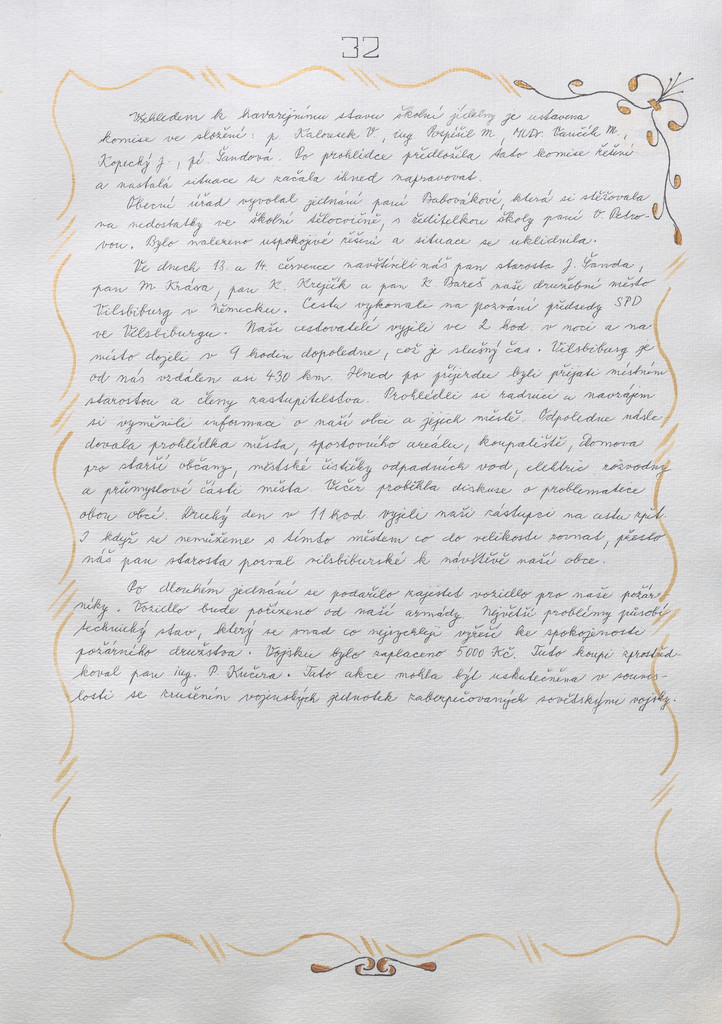 32
Vzhledem k havarijnímu stavu školní jídelny je ustavena
komise ve složení: p. Kalousek V, ing. Pospíšil M, MUDr. Vančík M.,
Kopecký J., pí. Šandová. Po prohlídce předložila tato komise řešení
a nastalá situace se začala ihned napravovat.
Obecní úřad vyvolal jednání paní Babovákové, která si stěžovala
na nedostatky ve školní tělocvičně, s ředitelkou školy paní V. Petro-
vou. Bylo nalezeno uspokojivé řešení a situace se uklidnila.
Ve dnech 13. a 14. července navštívili náš pan starosta J. Šanda,
pan M Krása, pan K. Krejčík a pan K. Bareš naše družební město
Vilsbiburg v Německu. Cestu vykonali na pozvání předsedy SPD
ve Vilsbiburgu. Naši cestovatelé vyjeli ve 2 hod. v noci a na
místo dojeli v 9 hodin dopoledne, což je slušný čas. Vilsbiburg je
od nás vzdálen asi 430 km. Ihned po příjezdu byli přijati místním
starostou a členy zastupitelstva. Prohlédli si radnici a navzájem
si vyměnili informace o naší obci a jejich městě. Odpoledne násle
dovala prohlídka města, sportovního areálu, koupaliště, Domova
pro starší občany, městské čističky odpadních vod, elektric. rozvodny
a průmyslové části města. Večer proběhla diskuse o problematice
obou obcí. Druhý den v 11 hod vyjeli naši zástupci na cestu zpět.
I když se nemůžeme s tímto městem co do velikosti rovnat, přesto
náš pan starosta pozval vilsbiburské k návštěvě naší obce.
Po dlouhém jednání se podařilo zajistit vozidlo pro naše požár
níky. Vozidlo bude pořízeno od naší armády. Největší problémy působí
technický stav, který se snad co nejrychleji vyřeší ke spokojenosti
požárního družstva. Vojsku bylo zaplaceno 5000 Kč. Tuto koupi zprostřed-
koval pan ing. P. Kučera. Tato akce mohla být uskutečněna v souvis-
losti se zrušením vojenských jednotek zabezpečovaných sovětskými vojsky.